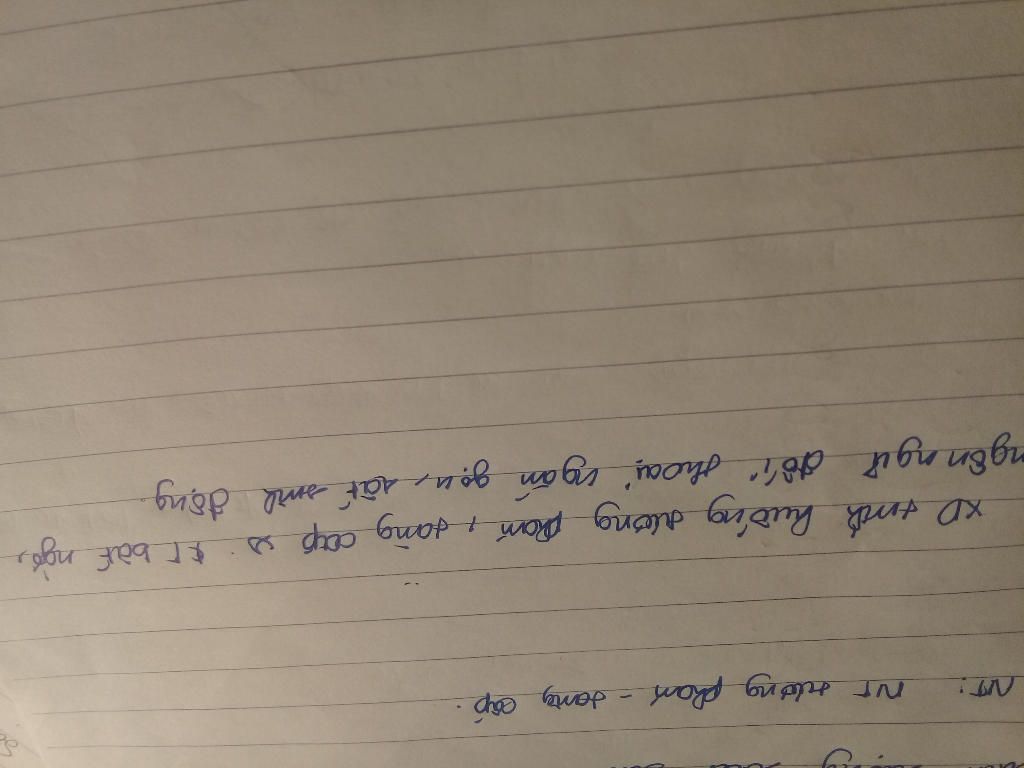 NT: NT tương phản - tăng cấp.
XD tình huống tương phản, tăng cấp → KT bất ngờ,
ngôn ngữ đối thoại ngắn gọn, rất sinh động.